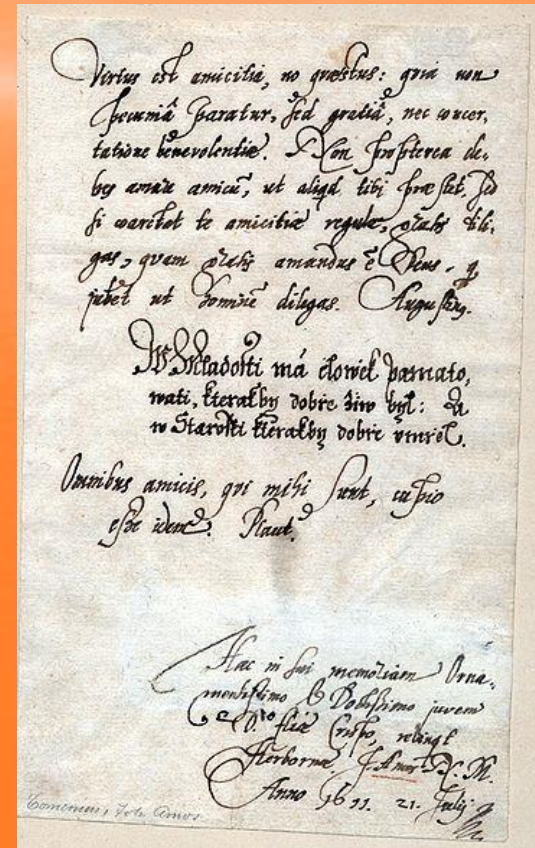 Virtus est amicitia, no quæstus: quia non
pecuniâ paratur, sed gratiâ, nec concer,
tatione benevolentiæ. Non propterea de,
bes amare amicū, ut aliqd tibi præstet, sed
si coarctat te amicitiæ regula, gratis dili,
gas, quam gratis amandus ē Deus, q
jubet ut hominē diligas. Augustin.
W Mladosti má člowěk pamato,
wati, kterakby dobře žiw byl: A
w Starosti kterakby dobře vmřel.
Omnibus amicis, qui mihi sunt, cupio
esse idem. Plaut.
Hæc in sui memoriam Orna,
mentissimo & Doctissimo juveni
Crispo,
Herbornæ J. Amos N. M.
Anno 1611. 21. Julij
Comenius, Joh. Amos